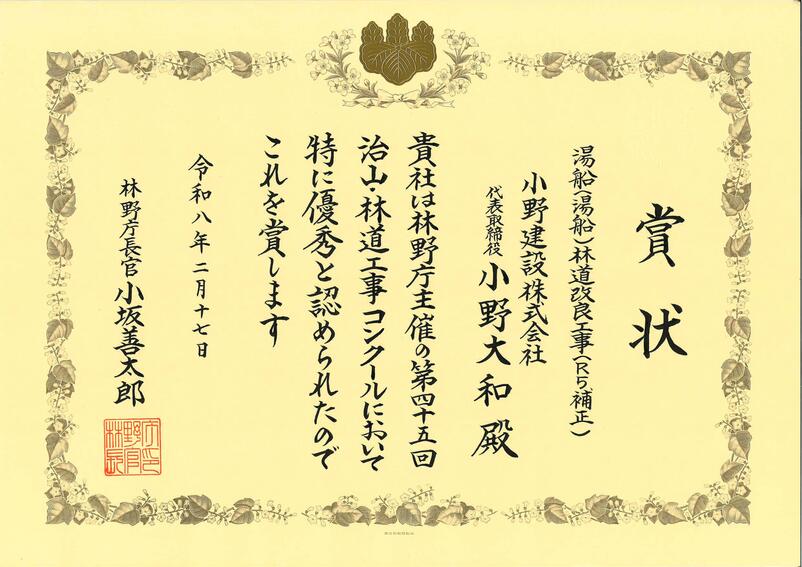 賞状
湯船(湯船)林道改良工事(R5補正)
小野建設株式会社
代表取締役 小野大和 殿
貴社は林野庁主催の第四十五回
治山・林道工事コンクールにおいて
特に優秀と認められたので
これを賞します
令和八年二月十七日
林野庁長官 小坂善太郎